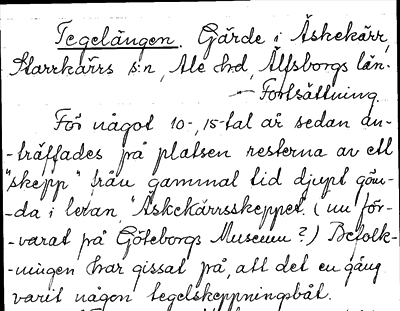 Tegelängen. Gärde i Äskekärr,
Starrkärrs s:n, Ale hrd, Älfsborgs län.
— Fortsättning.
För något 10-, 15-tal år sedan an-
-träffades på platsen resterna av ett
"skepp" från gammal tid djupt göm-
-da i leran, "Äskekärrsskeppet" (nu för-
-varat på Göteborgs Museum?) Befolk-
-ningen har gissat på, att det en gång
varit någon tegelskeppningsbåt.